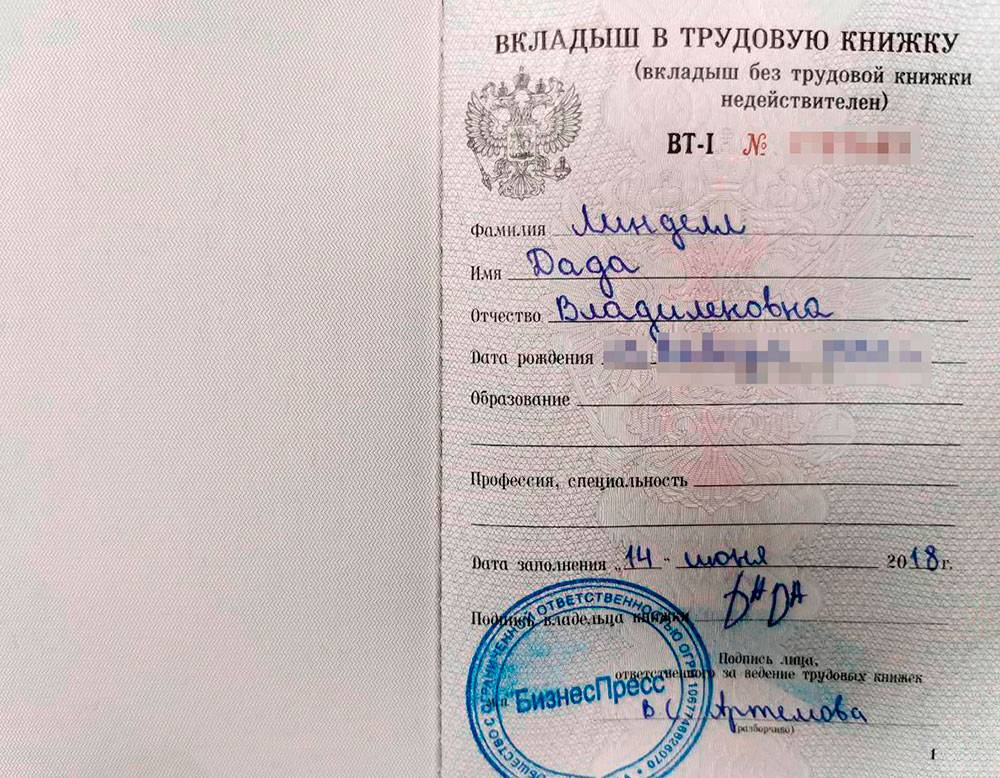 ВКЛАДЫШ В ТРУДОВУЮ КНИЖКУ
(вкладыш без трудовой книжки
недействителен)
ВТ-I №
Фамилия Линделл
Имя Дада
Отчество Владиленовна
Дата рождения
Образование
Профессия, специальность
Дата заполнения „14“ июня 2018 г.
Подпись владельца книжки ДАДА
ОБЩЕСТВО С ОГРАНИЧЕННОЙ ОТВЕТСТВЕННОСТЬЮ ОГРН 1067746826070
"БизнесПресс"
Подпись лица,
ответственного за ведение трудовых книжек
Артемова
(разборчиво)
1